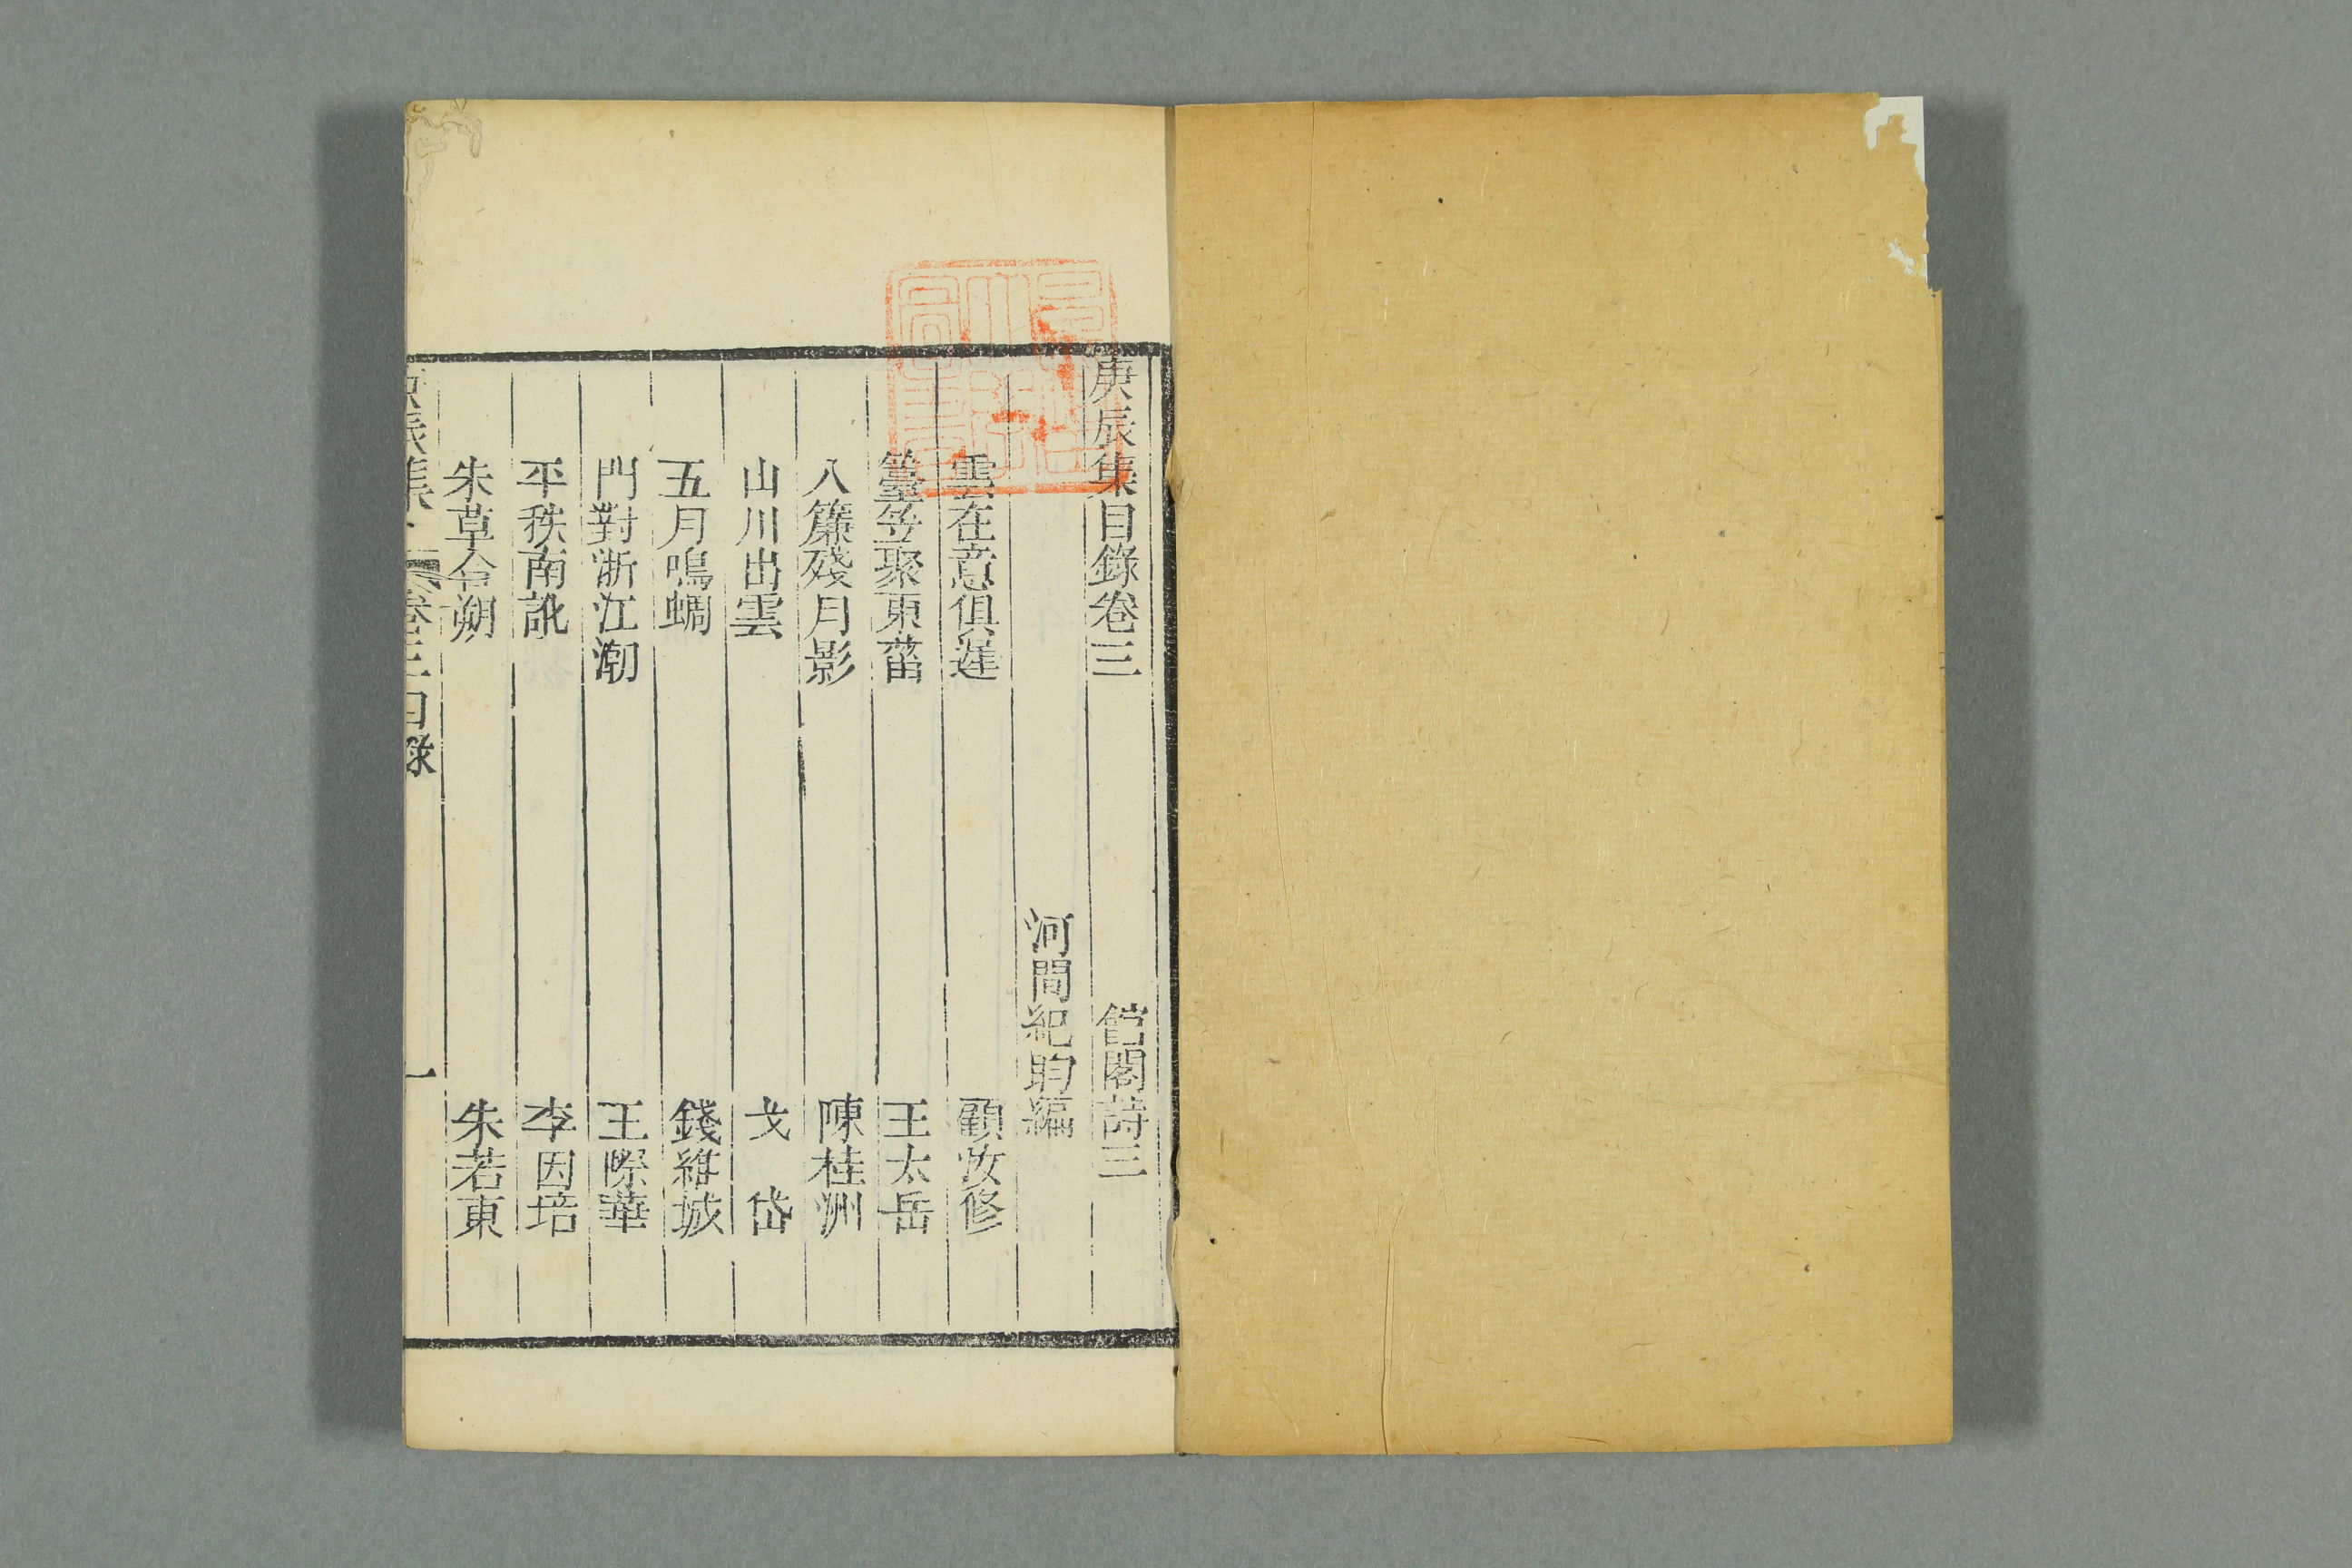 庚辰集目錄卷三 館閣詩三
河間紀昀編
雲在意俱遲 顧汝修
臺笠聚東菑 王太岳
入簾殘月影 陳桂洲
山川出雲 戈岱
五月鳴蜩 錢維城
門對浙江潮 王際華
平秩南訛 李因培
朱草合朔 朱若東
庚辰集 卷三目錄 一